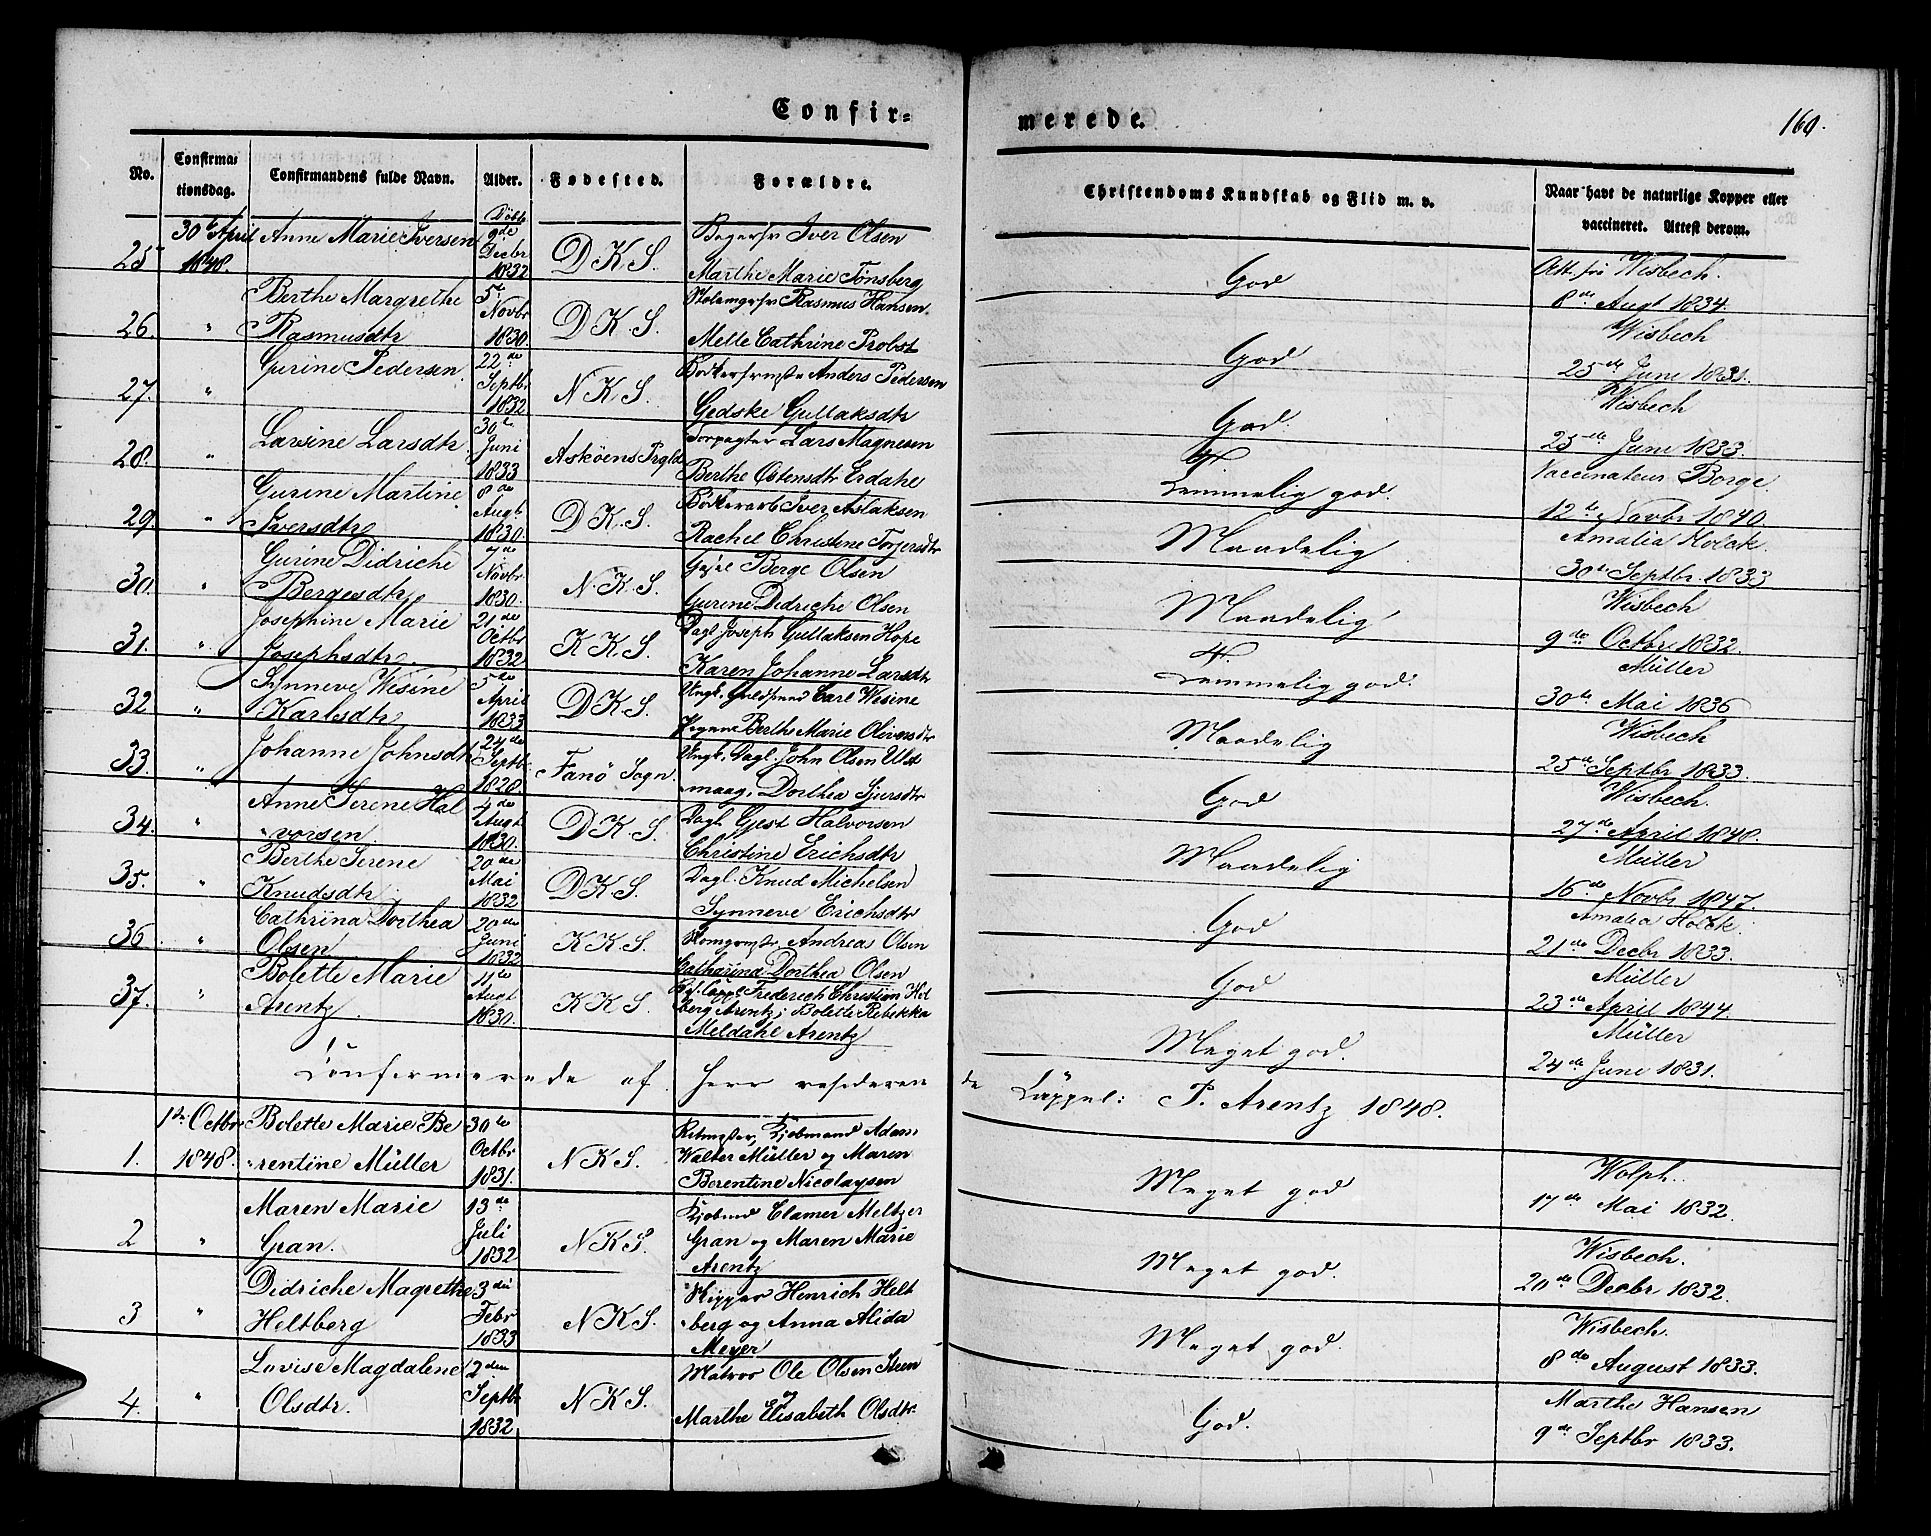 Confir=
merede.
169.
No.
Confirma=
tionsdag.
Confirmandens fulde Navn.
Alder.
Fødested.
Forældre.
Christendoms Kundskab og Flid m. v.
Naar havt de naturlige Kopper eller
vaccineret. Attest derom.
25 30te April 1848. Anne Marie Iversen Döbt 9de Decbr 1832 D.K.S. Iver Olsen
Marthe Marie Tönsberg God Att. fra Wisbech.
8de Augt 1834.
26. " Berthe Margrethe
Rasmusdtr 5te Novbr 1830. D.K.S. Rasmus Hansen.
Melle Cathrine Probst God Wisbech
25de Juni 1831.
27. " Gurine Pedersen 22de Septbr 1832 N.K.S. Anders Pedersen
Gedske Gullaksdtr God. Wisbech
25de Juni 1833
28. " Lavsine Larsdtr 30te Juni 1833 Askøens Prgld Lars Magnesen
Berthe Ostensdtr Erdahl Temmelig god. Vaccinateur Borge.
12te Novbr 1840.
29. " Gurine Martine
Iversdtr 8de Augt 1830. D.K.S. Iver Aslaksen
Rachel Christine Torjersdtr Maadelig Amalia Holck.
30te Septbr. 1833
30. " Gurine Didriche
Bergesdtr Novbr 1830. N.K.S. Berge Olsen
Gurine Didriche Olsen Maadelig Wisbech
9de Octbr 1832.
31. " Josephine Marie
Josephsdtr. 21de Octbr 1832 K.K.S. Dagl Joseph Gullaksen Hope
Karen Johanne Larsdtr Temmelig god. Müller
30te Mai 1836
32 " Synneve Wesine
Karlsdtr 5de April 1833 D.K.S. Ungk. Carl Wesine
Pigene Berthe Marie Olivensdtr Maadelig Wisbech
25de Septbr 1833.
33. " Johanne Johnsdtr 24de Septbr. 1828 Fanö Sogn. Ungk. Dagl. John Olsen Ust
maag, Dorthea Sjursdtr God Wisbech.
27de April 1848.
34. " Anne Serene Hal
vorsen 4de Augt 1830. D.K.S. Dagl Gjest Halvorsen
Christine Erichsdtr Maadelig Müller
16de Novbr 1847.
35. " Berthe Serene
Knudsdtr 20de Mai 1832 D.K.S. Dagl. Knud Michelsen
Synneve Erichsdtr God Amalia Holck.
21de Decbr 1833.
36 " Cathrina Dorthea
Olsen 20de Juni 1832 K.K.S. Andreas Olsen
Catharina Dorthea Olsen God Müller
23de April 1844.
37. " Bolette Marie
Arentz. 11te Augt 1830. K.K.S. Res. Capp. Frederich Christian Hol
berg Arentz; Bolette Rebekka
Meldahl Arentz Meget god. Müller
24de Juni 1831.
Confirmerede af Herr residerende Cappel: P. Arentz 1848.
1. 1ste Octbr 1848. Bolette Marie Be
rentine Müller 30te Octbr 1831. N.K.S. Kjøbmand Adam
Walter Müller og Maren
Berentine Nicolaysen Meget god Wolph.
17de Mai 1832.
2 " Maren Marie
Gran. 13de Juli 1832 N.K.S. Kjøbmd Clamer Meltzer
Gran og Maren Marie
Arentz Meget god. Wisbech.
20de Decbr 1832.
3 " Didriche Magrethe
Heltberg 3die Febr 1833 N.K.S. Skipper Henrich Helt
berg og Anna Alida
Meyer Meget god. Wisbech.
8de August 1833.
4. " Lovise Magdalene
Olsdtr. 2den Septbr 1832 N.K.S. Matros Ole Olsen Steen
og
Marthe Elisabeth Olsdtr God. Marthe Hansen
9de Septbr 1833.